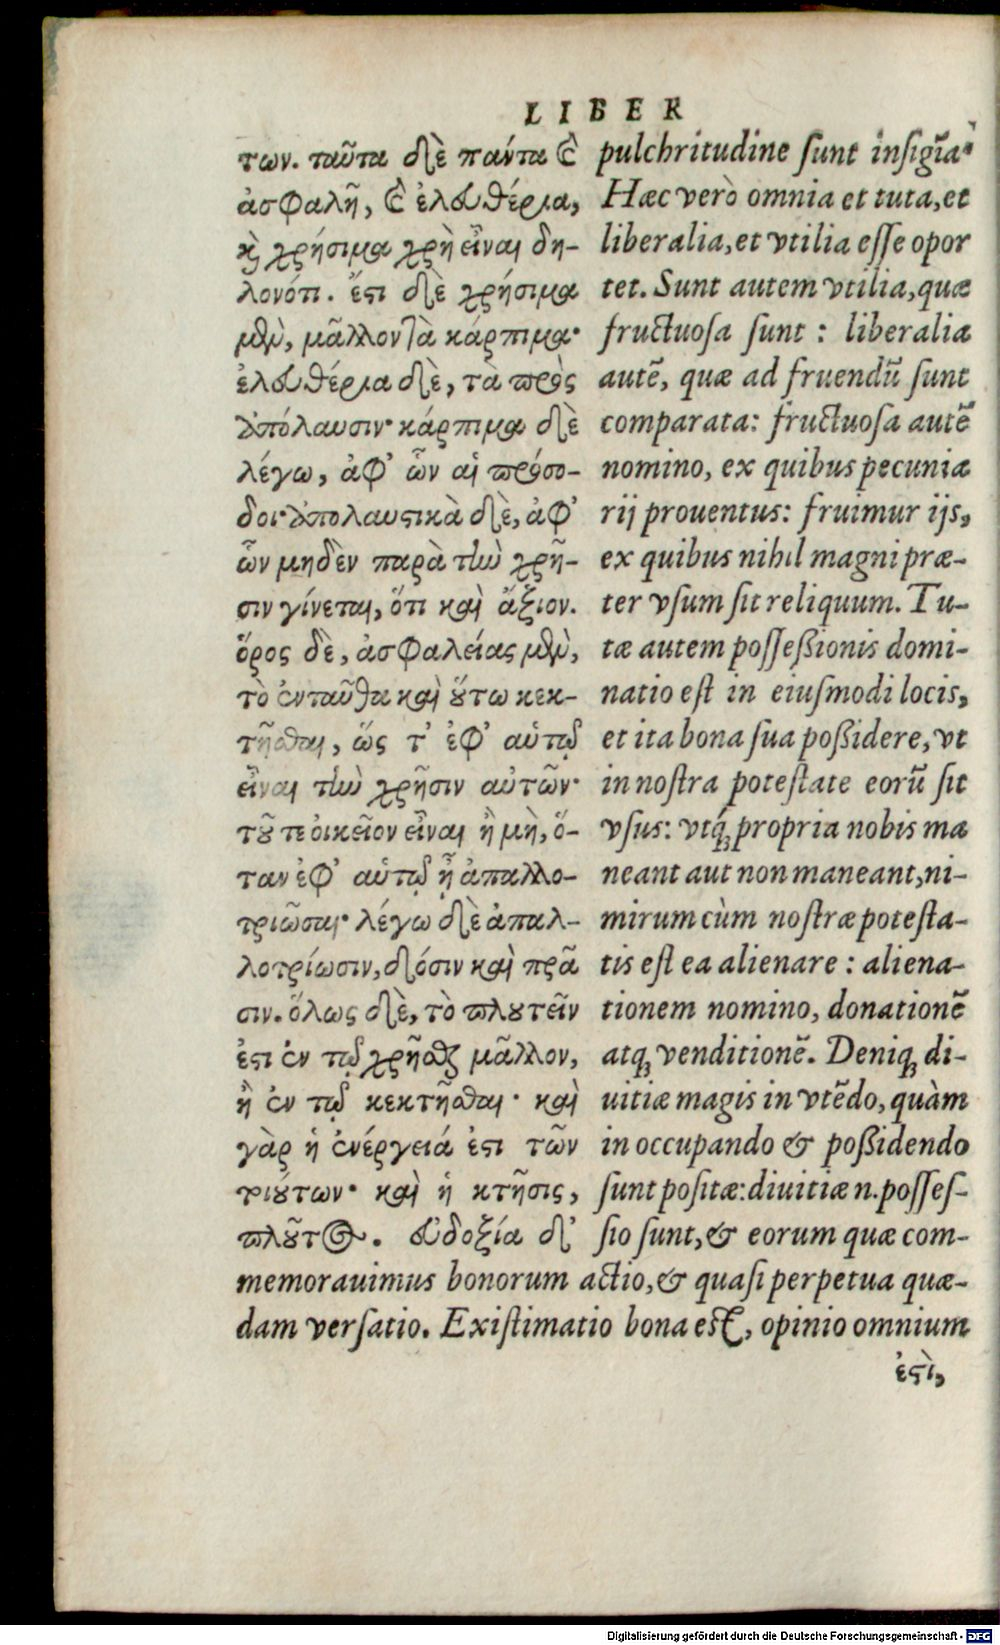 LIBER
των. ταῦτα δὲ πάντα καὶ
ἀσφαλῆ, καὶ ἐλευθέρια,
καὶ χρήσιμα χρὴ εἶναι δη-
λονότι. ἔστι δὲ χρήσιμα
μὲν, μᾶλλον τὰ κάρπιμα·
ἐλευθέρια δὲ, τὰ πρὸς
ἀπόλαυσιν· κάρπιμα δὲ
λέγω, ἀφ' ὧν αἱ πρόσο-
δοι· ἀπολαυστικὰ δὲ, ἀφ'
ὧν μηδὲν παρὰ τὴν χρῆ-
σιν γίνεται, ὅτι καὶ ἄξιον.
ὅρος δὲ, ἀσφαλείας μὲν,
τὸ ἐνταῦθα καὶ οὕτω κεκ-
τῆσθαι, ὥς τ' ἐφ' αὑτῷ
εἶναι τὴν χρῆσιν αὐτῶν·
τοῦ τε οἰκεῖον εἶναι ἢ μὴ, ὅ-
ταν ἐφ' αὑτῷ ᾖ ἀπαλλο-
τριῶσαι· λέγω δὲ ἀπαλ-
λοτρίωσιν, δόσιν καὶ πρᾶ
σιν. ὅλως δὲ, τὸ πλουτεῖν
ἐστι ἐν τῷ χρῆσθαι μᾶλλον,
ἢ ἐν τῷ κεκτῆσθαι· καὶ
γὰρ ἡ ἐνέργειά ἐστι τῶν
τοιούτων· καὶ ἡ κτῆσις,
πλοῦτος. εὐδοξία δ'
pulchritudine sunt insigīa·
Hæc verò omnia et tuta, et
liberalia, et vtilia esse opor
tet. Sunt autem vtilia, quæ
fructuosa sunt : liberalia
autē, quæ ad fruendū sunt
comparata: fructuosa autē
nomino, ex quibus pecunia
rij prouentus: fruimur ijs,
ex quibus nihil magni præ-
ter vsum sit reliquum. Tu-
tæ autem possessionis domi-
natio est in eiusmodi locis,
et ita bona sua possidere, vt
in nostra potestate eorū sit
vsus: vtq́ꝫ propria nobis ma
neant aut non maneant, ni-
mirum cùm nostræ potesta-
tis est ea alienare : aliena-
tionem nomino, donationē
atqꝫ venditionē. Deniqꝫ di-
uitiæ magis in vtēdo, quàm
in occupando & possidendo
sunt positæ: diuitiæ n. posses-
sio sunt, & eorum quæ com-
memorauimus bonorum actio, & quasi perpetua quæ-
dam versatio. Existimatio bona est, opinio omnium
ἐστὶ,
Digitalisierung gefördert durch die Deutsche Forschungsgemeinschaft - DFG